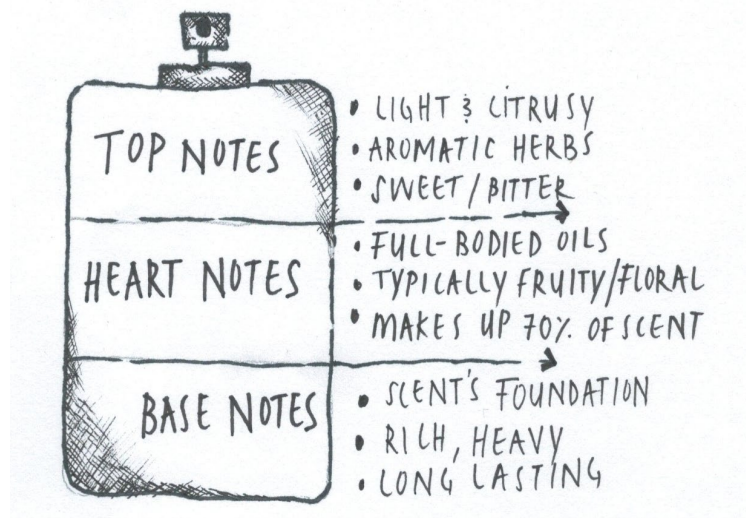 TOP NOTES
• LIGHT & CITRUSY
• AROMATIC HERBS
• SWEET / BITTER
HEART NOTES
• FULL-BODIED OILS
• TYPICALLY FRUITY/FLORAL
• MAKES UP 70% OF SCENT
BASE NOTES
• SCENT'S FOUNDATION
• RICH, HEAVY
• LONG LASTING